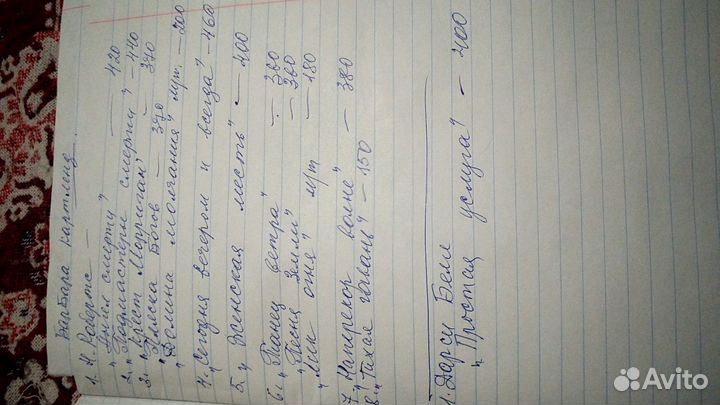 Барбара Картленд.
1. Н. Робертс —
"Ангел смерти" — 420
2. "Подмастерье смерти" — 440
3. "Крест Морриган" — 370
"Пляска Богов — 370
"Долина молчания" м/п. — 200
4. "Сегодня вечером и всегда" — 460
5. "Женская месть" — 400
6. "Танец ветра" — 360
"Песня Земли" — 360
"Лик огня" м/п — 180
7. "Наперекор волне" — 380
8. "Тихая гавань" — 150
1. Дарси Белл
"Простая услуга" — 400
Avito